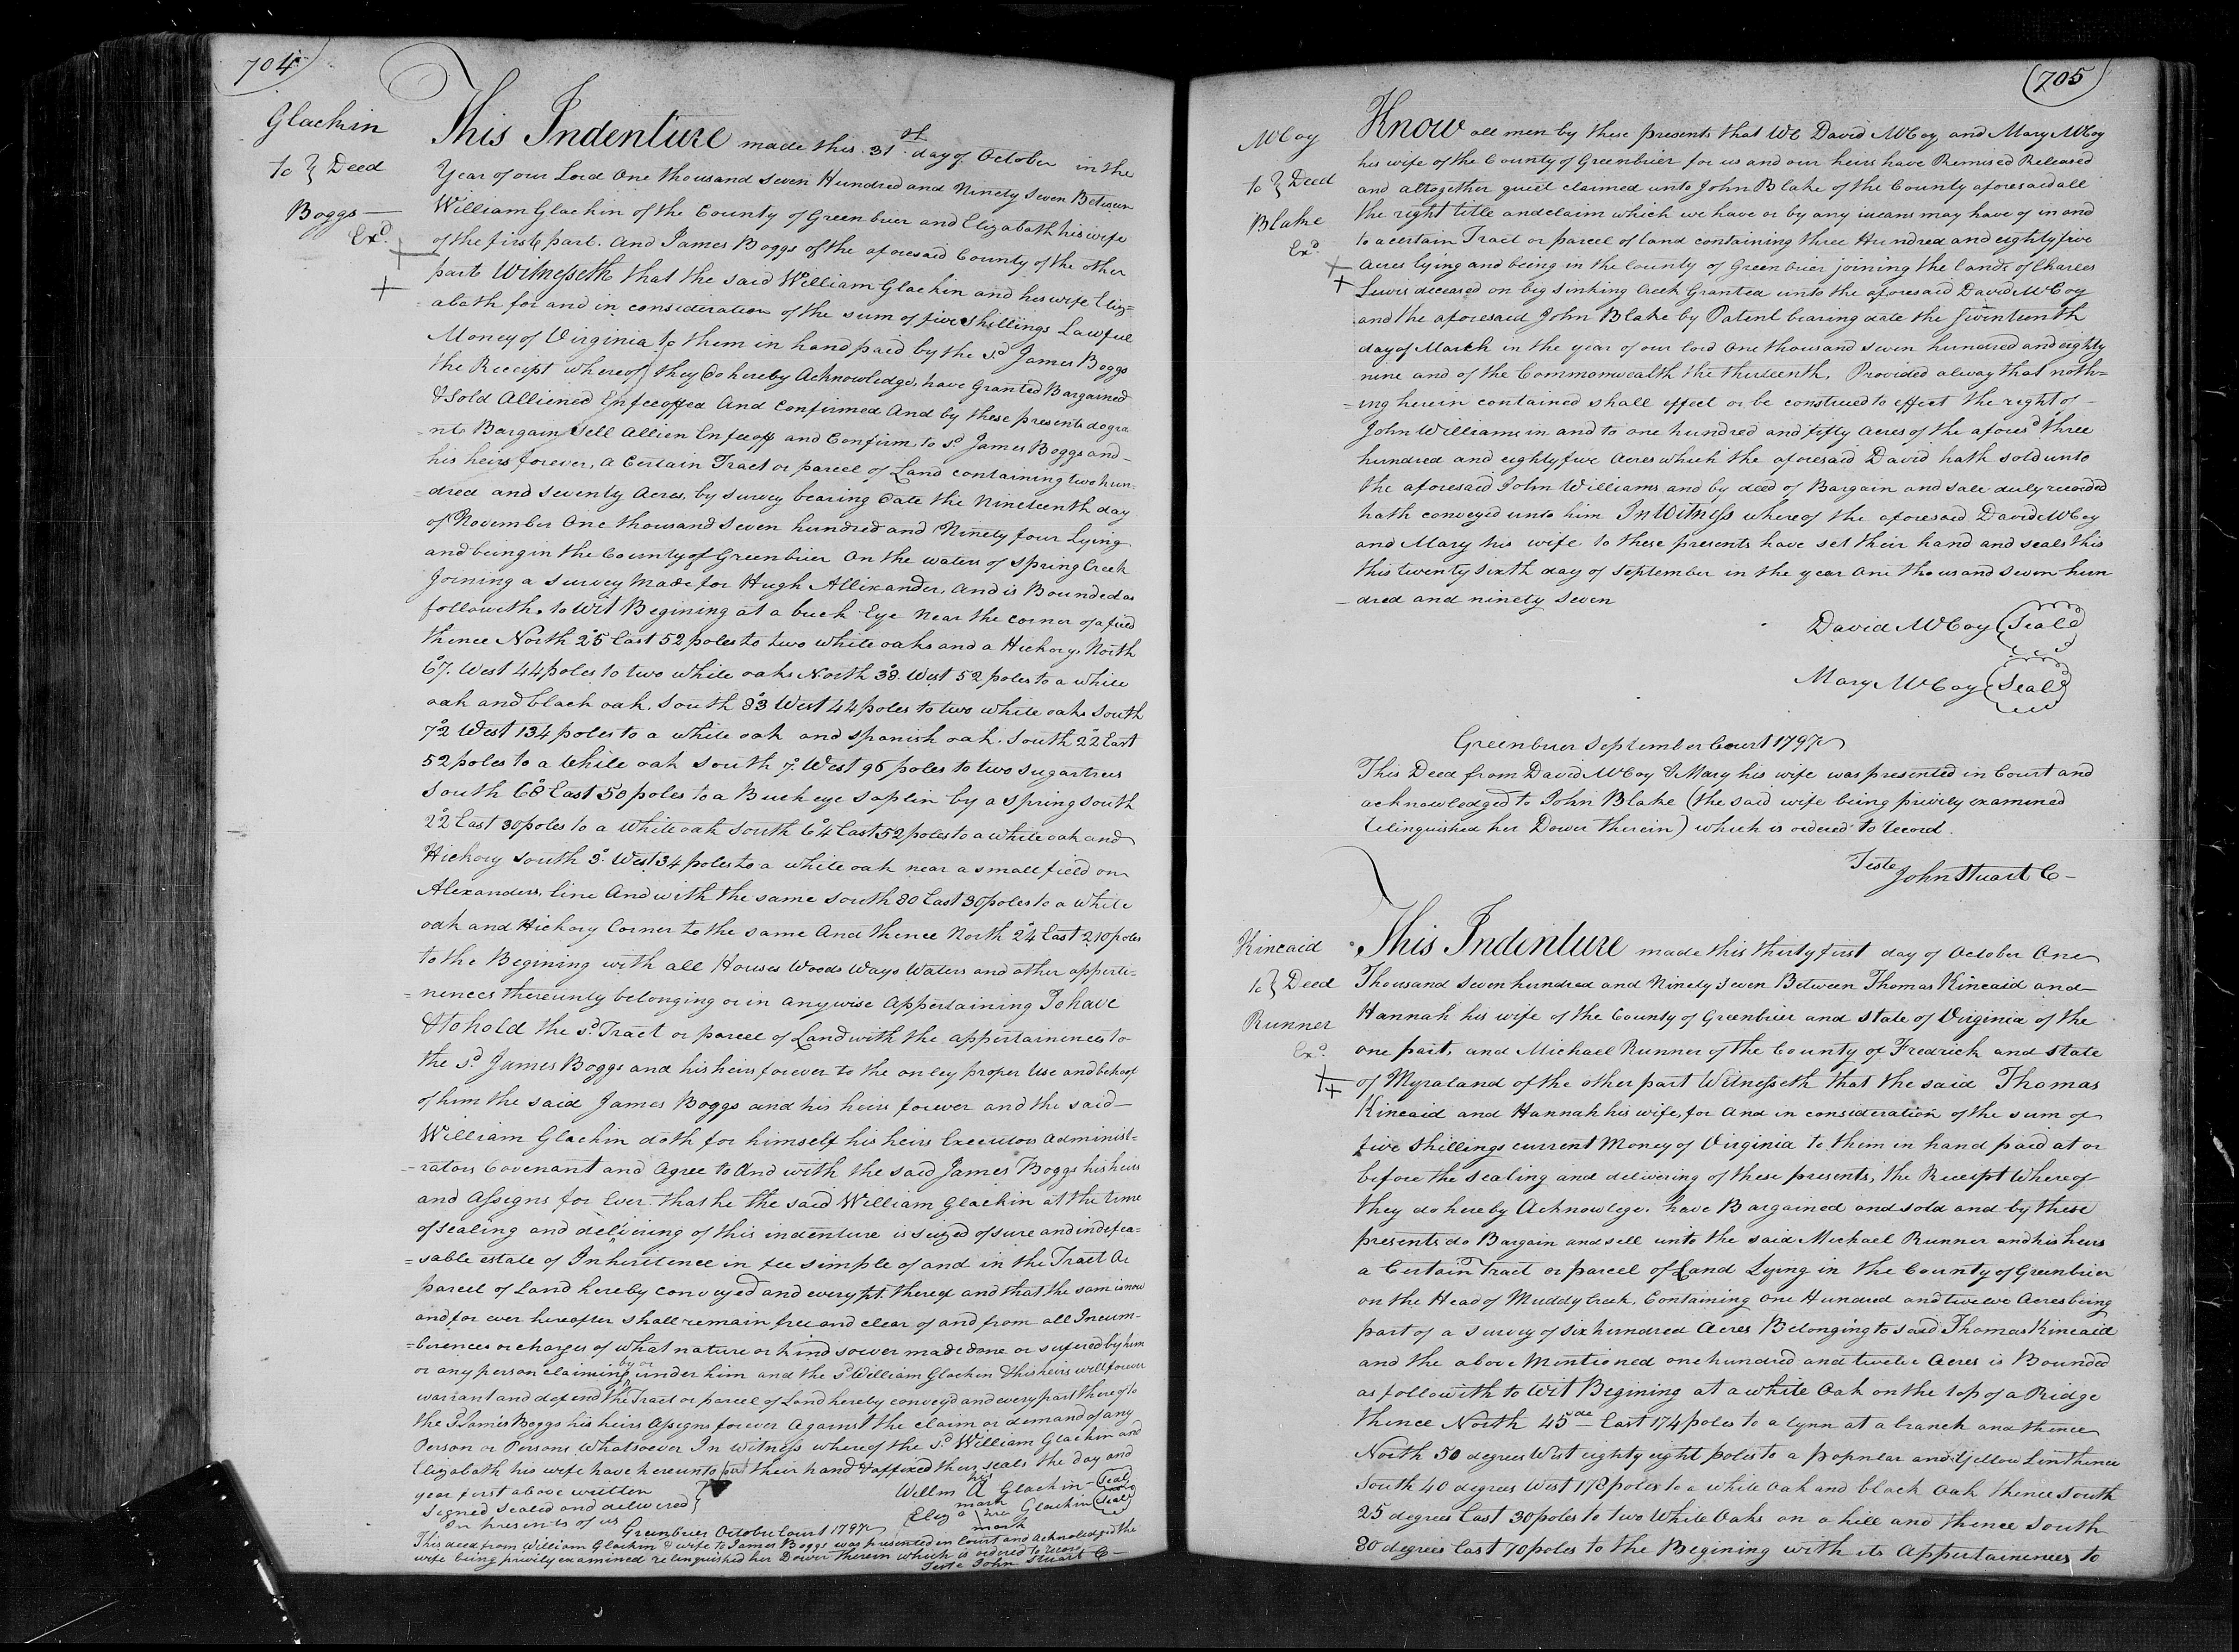 704
Glackin
to } Deed
Boggs
Exd.
This Indenture made this 31st day of October in the
Year of our Lord One thousand Seven Hundred and Ninety Seven Between
William Glackin of the County of Greenbrier and Elizabath his wife
of the first part. And James Boggs of the aforesaid County of the other
part Witnesseth that the said William Glackin and his wife Eliz=
=abath for and in consideration of the sum of five Shillings Lawful
Money of Virginia to them in hand paid by the sd James Boggs
the Receipt whereof they do hereby Acknowledge, have Granted Bargained
& Sold Alliened Enfeoffed And Confirmed And by these presents do gra
=nt Bargain Sell Allien Enfeoff and Confirm to sd James Boggs and
his heirs forever, a Certain Tract or parcel of Land containing two hun=
=dred and Seventy Acres, by survey bearing Date the Nineteenth day
of November One thousand Seven hundred and Ninety four Lying
and being in the County of Greenbrier On the waters of Spring Creek
Joining a Survey Made for Hugh Allixander, And is Bounded as
followith, to wit Begining at a buck Eye Near the corner of a field
thence North 25° East 52 poles to two white oaks and a Hickory, North
67° West 44 poles to two white oaks North 38° West 52 poles to a white
oak and black oak. South 83° West 44 poles to two white oaks South
72° West 134 poles to a white oak and Spanish oak. South 22° East
52 poles to a White oak South 7° West 96 poles to two Sugartrees
South 68° East 50 poles to a Buckeye Saplin by a Spring South
22° East 30 poles to a White oak South 64° East 52 poles to a white oak and
Hickory South 3° West 34 poles to a white oak near a small field on
Alexanders, line And with the same South 80 East 30 poles to a White
oak and Hickory Corner to the same And thence North 24° East 210 poles
to the Begining with all Houses Woods Ways Waters and other apperti=
=nences thereunty belonging or in anywise Appertaining To have
& to hold the sd Tract or parcel of Land with the appertainences to
the sd James Boggs and his heirs forever to the onley proper Use and behoof
of him the said James Boggs and his heirs forever and the said
William Glackin doth for himself his heirs Executors Administ=
=rators Covenant and Agree to And with the said James Boggs his heirs
and Assigns for Ever. that he the said William Glackin at the time
of Sealing and delivining of this indenture is seized of sure and indefea=
=sable estate of Inheritence in fee simple of and in the Tract Or
parcel of Land hereby conveyed and every pt. thereof and that the sam is now
and for ever hereafter shall remain free and clear of and from all Incum=
=berences or charges of what nature or Kind soever made done or sufered by him
or any person claiming by or under him and the sd William Glackin & his heirs will forever
warrant and defend the Tract or parcel of Land hereby conveyd and every part thereof to
the sd James Boggs his heirs Assigns forever Against the claim or demand of any
Person or Persons Whatsoever In Witness whereof the sd William Glackin and
Elizabath his wife have hereunto put their hand & affixed their seals the day and
year first above written
Signed Sealed and delivered }
In presents of us
Willm his A mark Glackin Seal
Eliza her mark Glackin Seal
Greenbrier October Court 1797
This deed from William Glackin & wife to James Boggs was presented in Court and Acknoledged the
wife being privily examined relinquished her Dower therein which is ordered to record
Teste John Stuart C
705
McCoy
to } Deed
Blake
Exd.
Know all men by these presents that We David McCoy and Mary McCoy
his wife of the County of Greenbrier for us and our heirs have Remised Released
and altogether quiet claimed unto John Blake of the County aforesaid all
the right title and claim which we have or by any means may have of in and
to a certain Tract or parcel of land containing three Hundred and eighty five
Acres lying and being in the County of Greenbrier joining the lands of Charles
Lewis deceased on big Sinking Creek Granted unto the aforesaid David McCoy
and the aforesaid John Blake by Patent bearing date the Seventeenth
day of March in the year of our lord One thousand seven hundred and eighty
nine and of the Commonwealth the thirteenth. Provided alway that noth=
=ing herein contained shall effect or be construed to effect the right of
John Williams in and to one hundred and fifty Acres of the aforesd three
hundred and eighty five Acres which the aforesaid David hath sold unto
the aforesaid John Williams and by deed of Bargain and sale duly recorded
hath conveyed unto him In Witness whereof the aforesaid David McCoy
and Mary his wife to these presents have set their hand and seals this
this twenty sixth day of September in the year One thousand seven hun
=dred and ninety seven
David McCoy Seal
Mary McCoy Seal
Greenbrier September Court 1797
This Deed from David McCoy & Mary his wife was presented in Court and
acknowledged to John Blake (the said wife being privily examined
relinguished her Dower therein) which is ordered to record.
Teste
John Stuart C
Kincaid
to } Deed
Runner
Exd.
This Indenture made this thirty first day of October One
Thousand Seven hundred and Ninety Seven Between Thomas Kincaid and
Hannah his wife of the County of Greenbrier and State of Virginia of the
one part, and Michael Runner of the County of Fredrick and State
of Myraland of the other part Witnesseth that the said Thomas
Kincaid and Hannah his wife, for And in consideration of the sum of
five Shillings current Money of Virginia to them in hand paid at or
before the sealing and delivering of these presents, the Receipt Whereof
they do hereby Acknowlege. have Bargained and sold and by these
presents do Bargain and sell unto the said Michael Runner and his heirs
a Certain Tract or parcel of Land Lying in the County of Greenbrier
on the Head of Muddy Creek, Containing One Hundred and twelve Acres being
part of a survey of six hundred Acres Belonging to said Thomas Kincaid
and the above Mentioned one hundred and twelve Acres is Bounded
as followith to Wit Begining at a white Oak on the top of a Ridge
thence North 45de East 174 poles to a lynn at a branch and thence
North 50 degrees West eighty eight poles to a popular and Yellow Lin thence
South 40 degrees West 178 poles to a white Oak and black Oak thence South
25 degrees East 30 poles to two White Oaks on a hill and thence South
80 degrees East 70 poles to the Begining with its Appertainences to